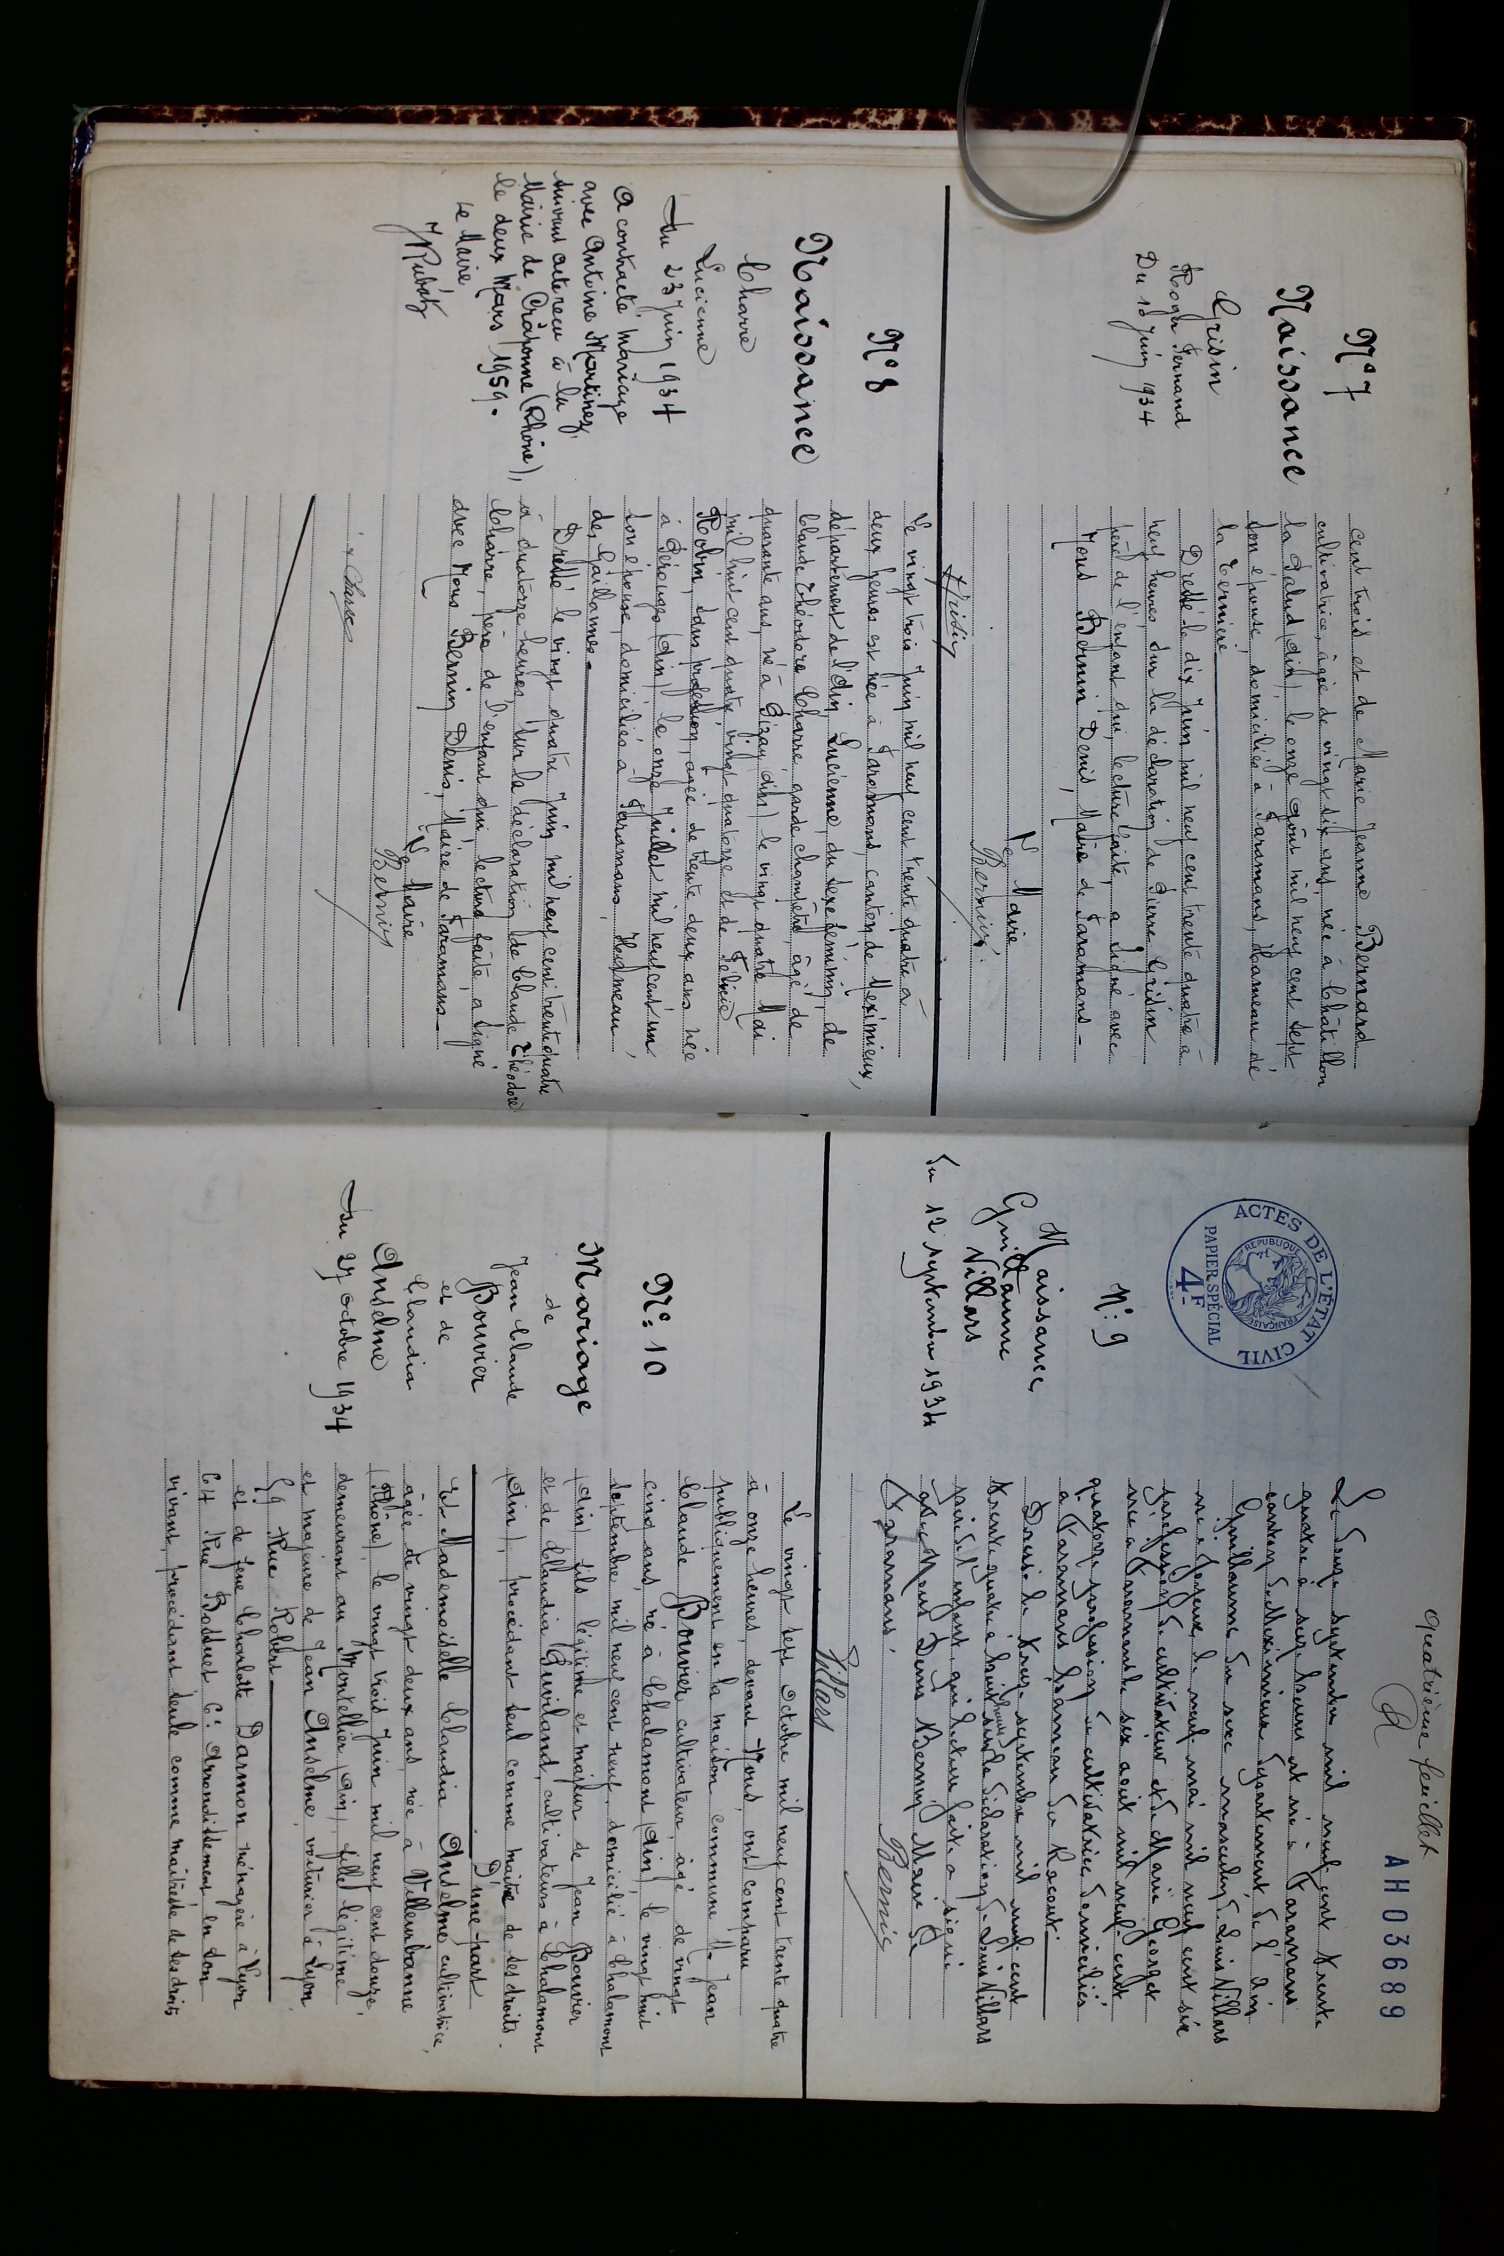 N° 7
Naissance
Grisin
Roger Fernand
Du 10 Juin 1934
cent trois et de Marie Jeanne Bernard
cultivatrice, âgée de vingt six ans, née à Châtillon
la Palud (Ain) le onze août mil neuf cent sept
son épouse, domiciliés à Faramans, Hameau de
la Ternière
Dressé le dix Juin mil neuf cent trente quatre à
neuf heures, sur la déclaration de Pierre Grisin
père de l'enfant qui, lecture faite, a signé avec
Nous Bernin Denis, Maire de Faramans-
Le Maire
Grisin
Bernin
N° 8
Naissance
Charre
Lucienne
Du 23 Juin 1934
A contracté mariage
avec Antoine Martinez,
suivant acte reçu à la
Mairie de Craponne (Rhône),
le deux Mars 1959.
Le Maire
Le vingt trois Juin mil neuf cent trente quatre à
deux heures est née à Faramans, canton de Meximieux,
département de l'Ain, Lucienne, du sexe féminin, de
Claude Théodore Charre, garde champêtre, âgé de
quarante ans, né à Pizay (Ain) le vingt quatre Mai
mil huit cent quatre vingt quatorze et de Félicie
Robin, sans profession, âgée de trente deux ans née
à Pérouges (Ain) le onze Juillet mil neuf cent un
son épouse, domiciliés à Faramans, Hameau,
des Gaillannes-
Dressé le vingt quatre Juin mil neuf cent trente quatre
à quatorze heures, sur la déclaration de Claude Théodore
Charre, père de l'enfant qui, lecture faite, a signé
avec Nous Bernin Denis, Maire de Faramans-
Le Maire
Bernin
Charre
quatrième feuillet
AH03689
ACTES DE L'ÉTAT CIVIL
RÉPUBLIQUE FRANÇAISE
PAPIER SPÉCIAL
4F
N°: 9
Naissance
Guillaume
Villars
du 12 septembre 1934
Le douze septembre mil neuf cent trente
quatre à seize heures est né à Faramans
canton de Meximieux département de l'Ain
Guillaume du sexe masculin de Louis Villars
né à Joyeux, le neuf mai mil neuf cent six
profession de cultivateur et de Marie Georget
née à Faramans le six août mil neuf cent
quatorze profession de cultivatrice domiciliés
à Faramans hameau du Racout.
Dressé le treize septembre mil neuf cent
trente quatre à huit heures sur la déclaration de Louis Villars
père de l'enfant, qui lecture faite a signé
avec Nous Denis Bernin Maire de
Faramans.
Villars
Bernin
N°: 10
Mariage
de
Jean Claude
Bouvier
et de
Claudia
Anselme
Du 27 octobre 1934
Le vingt sept octobre mil neuf cent trente quatre
à onze heures, devant Nous, ont comparu
publiquement en la maison commune M. Jean
Claude Bouvier cultivateur, âgé de vingt
cinq ans, né à Chalamont (Ain) le vingt huit
septembre mil neuf cent neuf, domicilié à Chalamont
(Ain) fils légitime et majeur de Jean Bouvier
et de Claudia Guviland, cultivateurs à Chalamont
(Ain), procédant seul comme maître de ses droits.
D'une part
Et Mademoiselle Claudia Anselme cultivatrice,
âgée de vingt deux ans, née à Villeurbanne
(Rhône), le vingt trois Juin mil neuf cent douze,
demeurant au Montellier (Ain), fille légitime
et majeure de Jean Anselme, voiturier à Lyon
59 Rue Robert-
et de feue Charlotte Darmon ménagère à Lyon
64 Rue Bossuet 6e Arrondissement en son
vivant, procédant seule comme maîtresse de ses droits